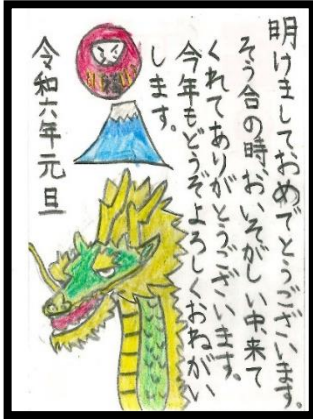 明けましておめでとうございます。
そう合の時おいそがしい中来て
くれてありがとうございます。
今年もどうぞよろしくおねがい
します。
令和六年元旦